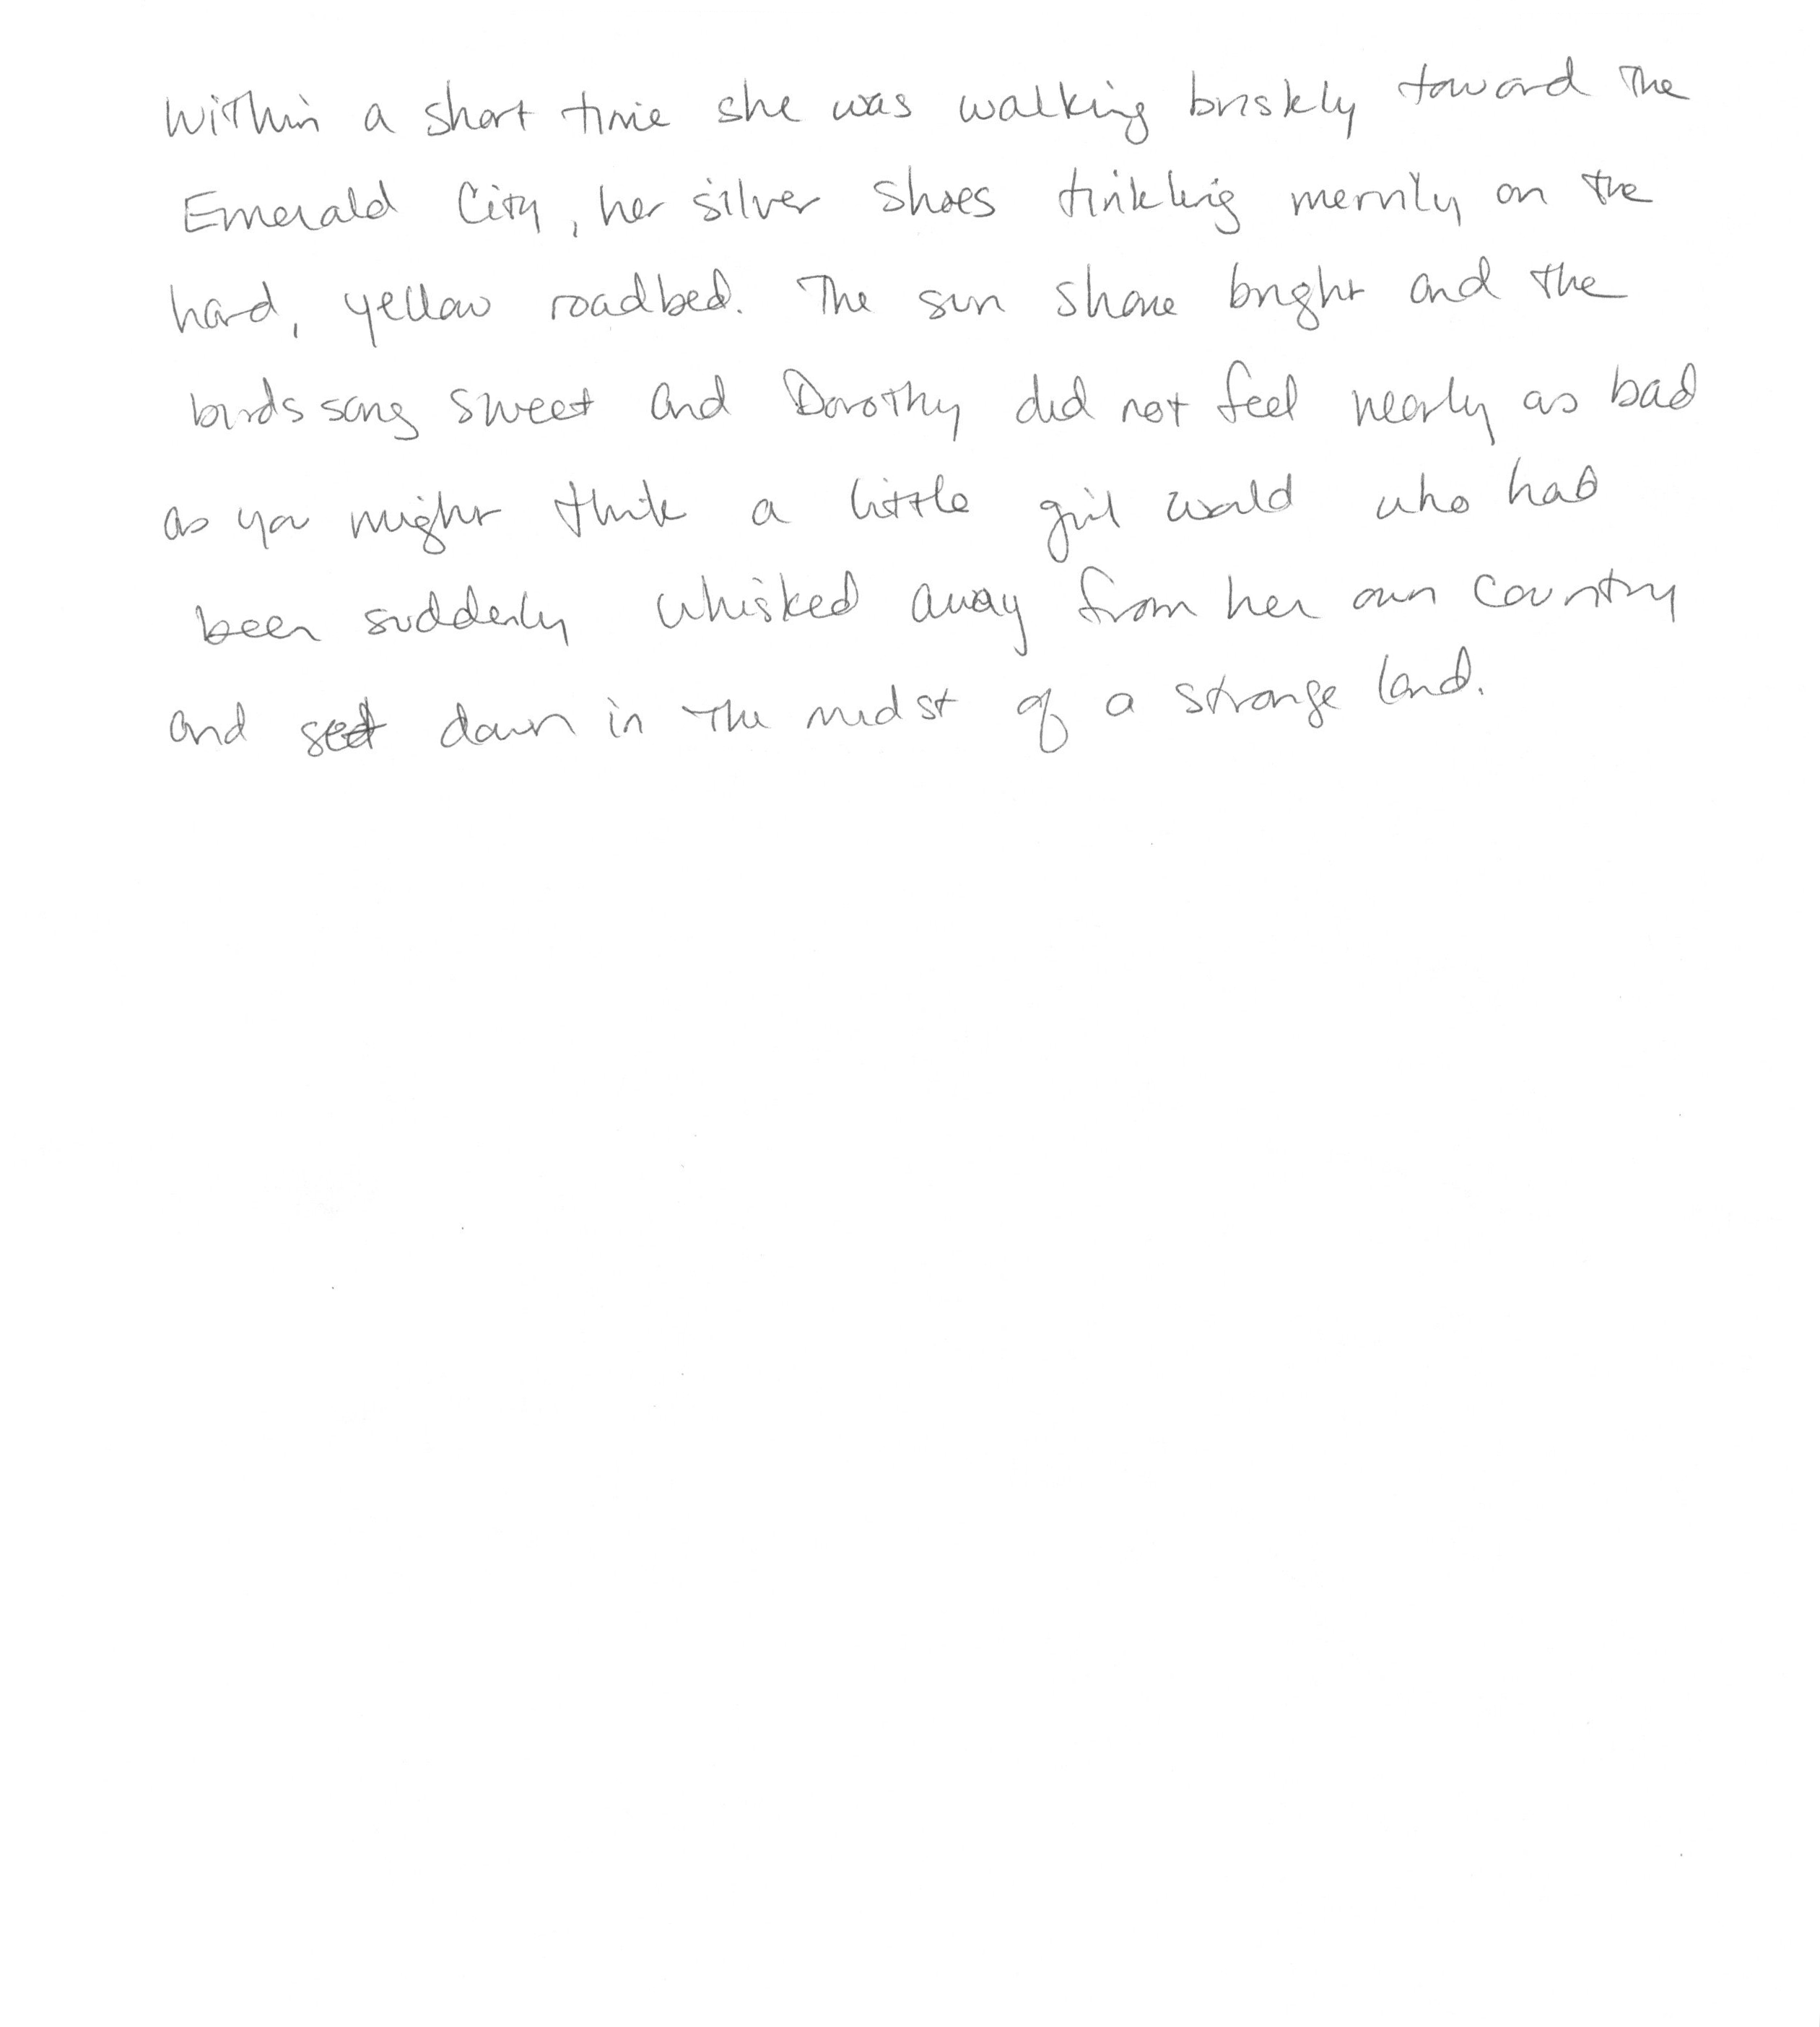 Within a short time she was walking briskly toward the
Emerald City, her silver shoes tinkling merrily on the
hard, yellow roadbed. The sun shone bright and the
birds sang sweet and Dorothy did not feel nearly as bad
as you might think a little girl would who had
been suddenly whisked away from her own country
and set down in the midst of a strange land.